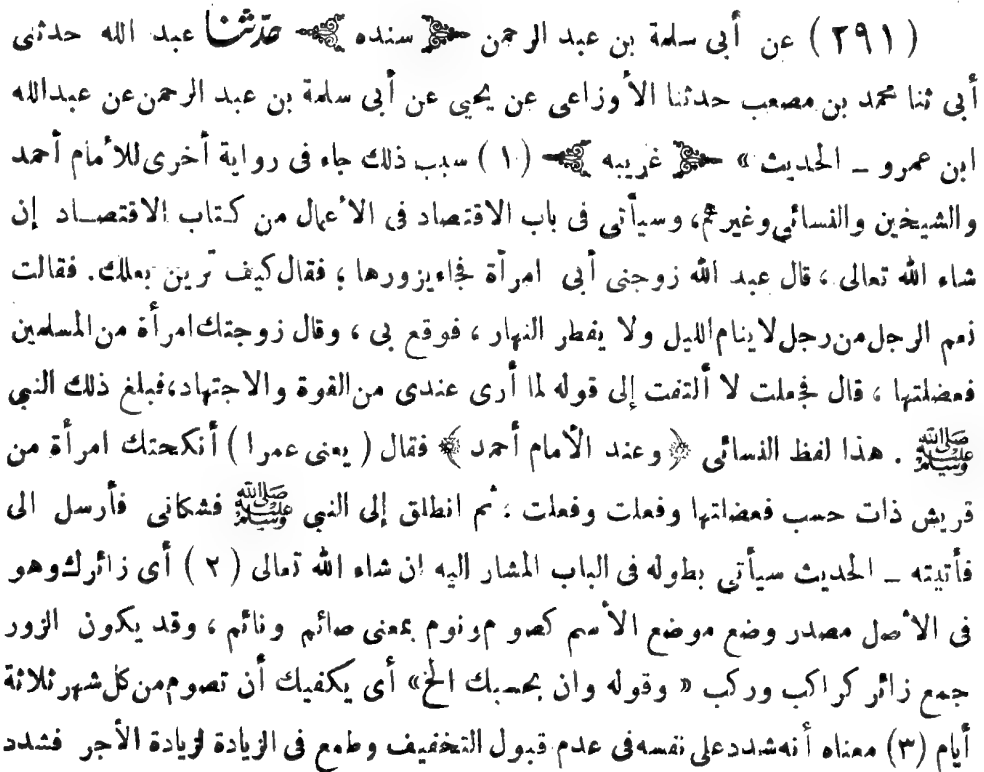 (٢٩١) عن أبى سلمة بن عبد الرحمن ﴿ سنده ﴾ حدّثنا عبد الله حدثنى
أبى ثنا محمد بن مصعب حدثنا الأوزاعى عن يحيى عن أبى سلمة بن عبد الرحمن عن عبدالله
ابن عمرو ــ الحديث » ﴿ غريبه ﴾ (١) سبب ذلك جاء فى رواية أخرى للأمام أحمد
والشيخين والنسائي وغيرهم، وسيأتى فى باب الاقتصاد فى الأعمال من كتاب الاقتصاد إن
شاء الله تعالى ، قال عبد الله زوجنى أبى امرأة فجاء يزورها ؛ فقال كيف ترين بعلك. فقالت
نعم الرجل من رجل لا ينام الليل ولا يفطر النهار ، فوقع بى ، وقال زوجتك امرأة من المسلمين
فعضلتها ، قال فجعلت لا ألتفت إلى قوله لما أرى عندى من القوة والاجتهاد، فبلغ ذلك النبي
ﷺ . هذا لفظ النسائى ﴿ وعند الأمام أحمد ﴾ فقال ( يعنى عمرا ) أنكحتك امرأة من
قريش ذات حسب فعضلتها وفعلت وفعلت ؛ ثم انطلق إلى النبى ﷺ فشكانى فأرسل الى
فأتيته ــ الحديث سيأتي بطوله فى الباب المشار اليه إن شاء الله تعالى (٢) أى زائرك وهو
فى الأصل مصدر وضع موضع الأسم كصوم ونوم بمعنى صائم ونائم ، وقد يكون الزور
جمع زائر كراكب وركب « وقوله وان بحسبك الخ» أى يكفيك أن تصوم من كل شهر ثلاثة
أيام (٣) معناه أنه شدد على نفسه فى عدم قبول التخفيف وطمع فى الزيادة لزيادة الأجر فشدد